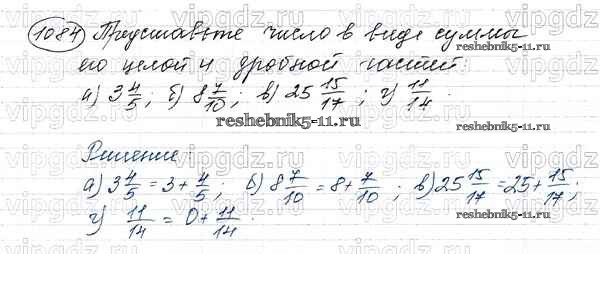 1084 Представьте число в виде суммы
его целой и дробной частей:
а) 3 4/5; б) 8 7/10; в) 25 15/17; г) 11/14.
reshebnik5-11.ru
Решение:
а) 3 4/5 = 3 + 4/5; б) 8 7/10 = 8 + 7/10; в) 25 15/17 = 25 + 15/17;
г) 11/14 = 0 + 11/14.
vipgdz.ru